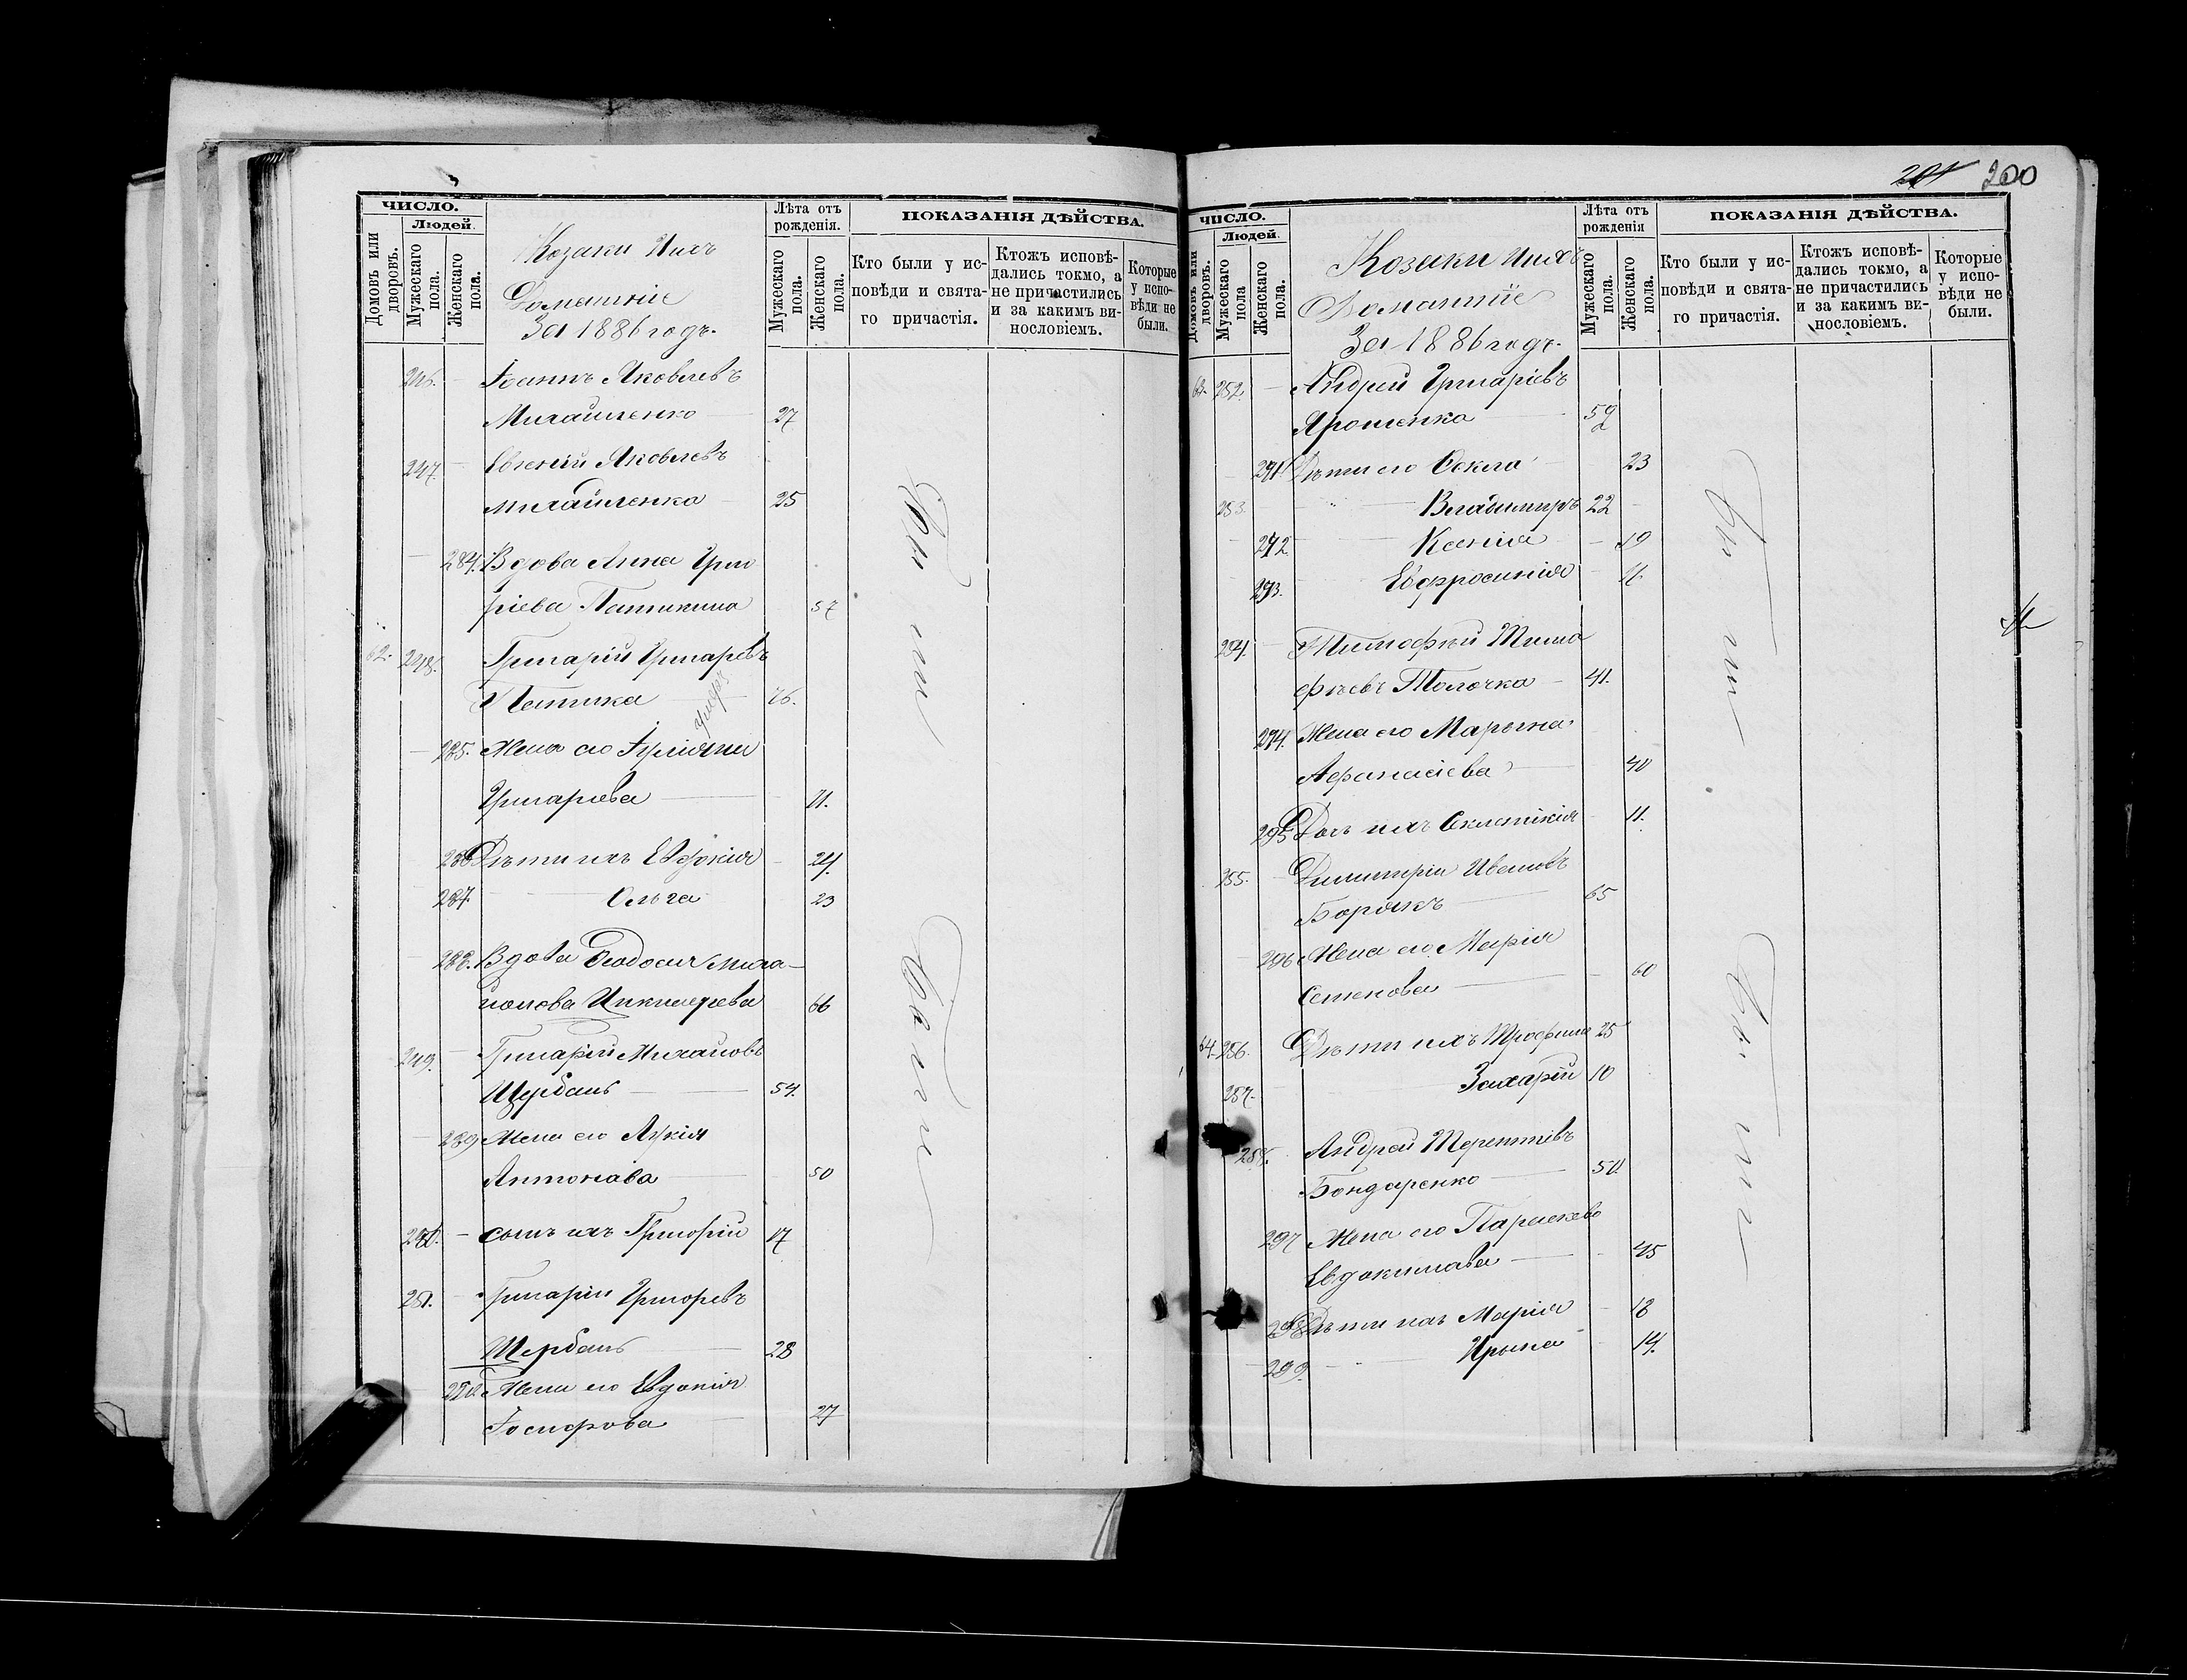 ЧИСЛО.
Людей.
Домовъ или дворовъ.
Мужескаго пола.
Женскаго пола.
Козаки ихъ
Домашніе
За 1886 годъ.
Лѣта отъ рожденія.
Мужескаго пола.
Женскаго пола.
ПОКАЗАНІЯ ДѢЙСТВА.
Кто были у ис-
повѣди и свята-
го причастія.
Ктожъ исповѣ-
дались токмо, а
не причастились
и за какимъ ви-
нословіемъ.
Которые
у испо-
вѣди не
были.
246. Іоаннъ Яковлевъ
Михайленко 27
247. Евгеній Яковлевъ
Михайленко 25
284. Вдова Анна Григо
ріева 57
62. 248. Григорій Григорьевъ
76.
умеръ
285. Жена его Іуліянія
Григорьева 71.
286 Дѣти ихъ Евфимія 24.
287. Ольга 23
288. Вдова Феодосія Миха-
йлова 66
249. Григорій Михайловъ
Щербань 54.
289 Жена его Лукія
Антонова 50
250. сынъ ихъ Григорій 17
251. Григорій Григорьевъ
Щербань 28
290. Жена его Евдокія
Іосифова 27
Были
Были
201 200
ЧИСЛО.
Людей.
Домовъ или дворовъ.
Мужескаго пола
Женскаго пола.
Козаки ихъ
Домашніе
За 1886 годъ.
Лѣта отъ рожденія
Мужескаго пола.
Женскаго пола.
ПОКАЗАНІЯ ДѢЙСТВА.
Кто были у ис-
повѣди и свята-
го причастія.
Ктожъ исповѣ-
дались токмо, а
не причастились
и за какимъ ви-
нословіемъ.
Которые
у испо-
вѣди не
были.
63. 252. Андрей Григоріевъ
Ярошенко 59
291. Дѣти его Фекла 23
253. Владимиръ 22
292. Ксенія 19
293. Евфросинія 16
254. Тимофѣй Тимо
фѣевъ Толочка 41.
294. Жена его Марина
Афанасіева 40
295 Дочь ихъ 11.
255. Димитрій Ивановъ
Борякъ 65
296 Жена его Марія
Семенова 60
64. 256. Дѣти ихъ Трофимъ 25
257. Захарій 10
258. Андрей Терентіевъ
Бондаренко 50
297 Жена его Параскева
Евдокимова 45
298 Дѣти ихъ Марія 18
299. Ирина 14.
Были
Были